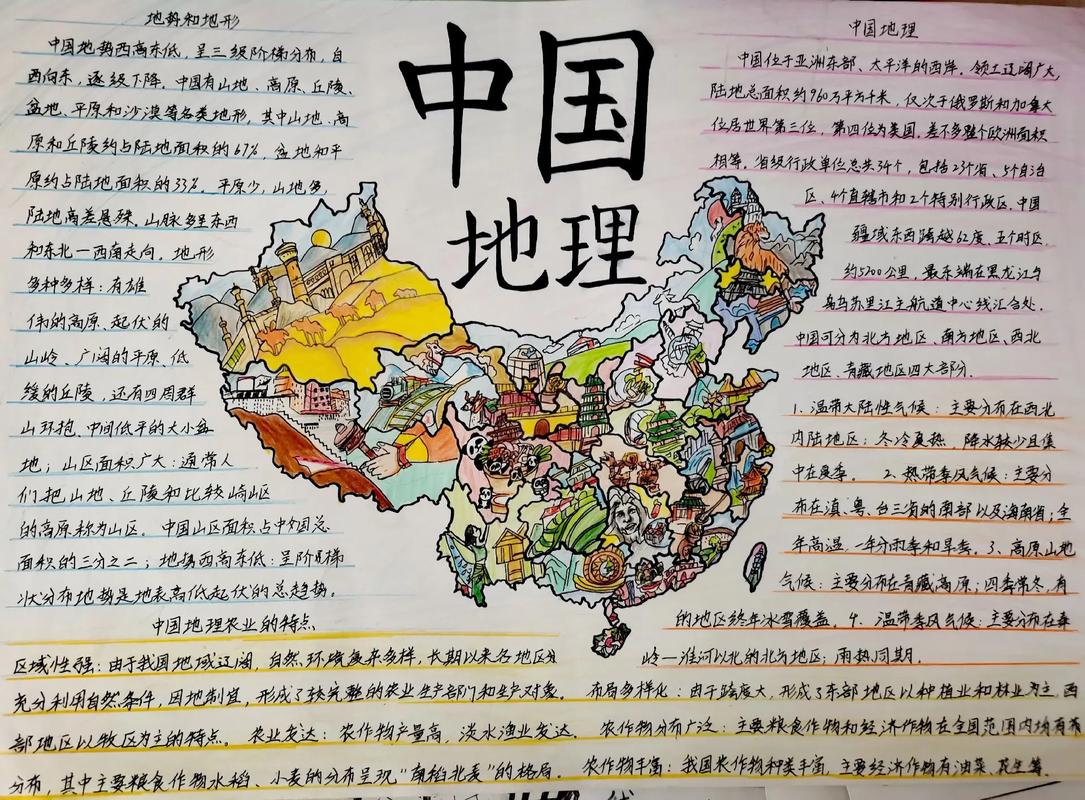 中国
地理
地势和地形
中国地势西高东低，呈三级阶梯分布，自
西向东，逐级下降。中国有山地、高原、丘陵、
盆地、平原和沙漠等各类地形，其中山地、高
原和丘陵约占陆地面积的67%，盆地和平
原约占陆地面积的33%。平原少，山地多，
陆地高差悬殊，山脉多呈东西
和东北一西南走向，地形
多种多样：有雄
伟的高原、起伏的
山岭、广阔的平原、低
缓的丘陵，还有四周群
山环抱、中间低平的大小盆
地；山区面积广大：通常人
们把山地、丘陵和比较崎岖
的高原称为山区。中国山区面积占中国总
面积的三分之二；地势西高东低：呈阶梯
状分布地势是地表高低起伏的总趋势。
中国地理
中国位于亚洲东部、太平洋的西岸，领土辽阔广大，
陆地总面积约960万平方千米，仅次于俄罗斯和加拿大
位居世界第三位，第四位为美国，差不多整个欧洲面积
相等。省级行政单位总共34个，包括23个省、5个自治
区、4个直辖市和2个特别行政区。中国
疆域东西跨越62度、五个时区，
约5200公里，最东端在黑龙江与
乌苏里江主航道中心线汇合处。
中国可分为北方地区、南方地区、西北
地区、青藏地区四大部分。
1、温带大陆性气候：主要分布在西北
内陆地区：冬冷夏热，降水稀少且集
中在夏季。 2、热带季风气候：主要分
布在滇、粤、台三省的南部以及海南省；全
年高温，一年分雨季和旱季。3、高原山地
气候：主要分布在青藏高原；四季常冬，有
的地区终年冰雪覆盖。4、温带季风气候：主要分布在秦
岭一淮河以北的北方地区；雨热同期。
中国地理农业的特点
区域性强：由于我国地域辽阔，自然环境复杂多样，长期以来各地区分
充分利用自然条件，因地制宜，形成了较完整的农业生产部门和生产对象。 布局多样化：由于跨度大，形成了东部地区以种植业和林业为主，西
部地区以牧区为主的特点。 农业发达：农作物产量高，淡水渔业发达。 农作物分布广泛：主要粮食作物和经济作物在全国范围内均有
分布，其中主要粮食作物水稻、小麦的分布呈现“南稻北麦”的格局。 农作物丰富：我国农作物种类丰富，主要经济作物有油菜、花生等。